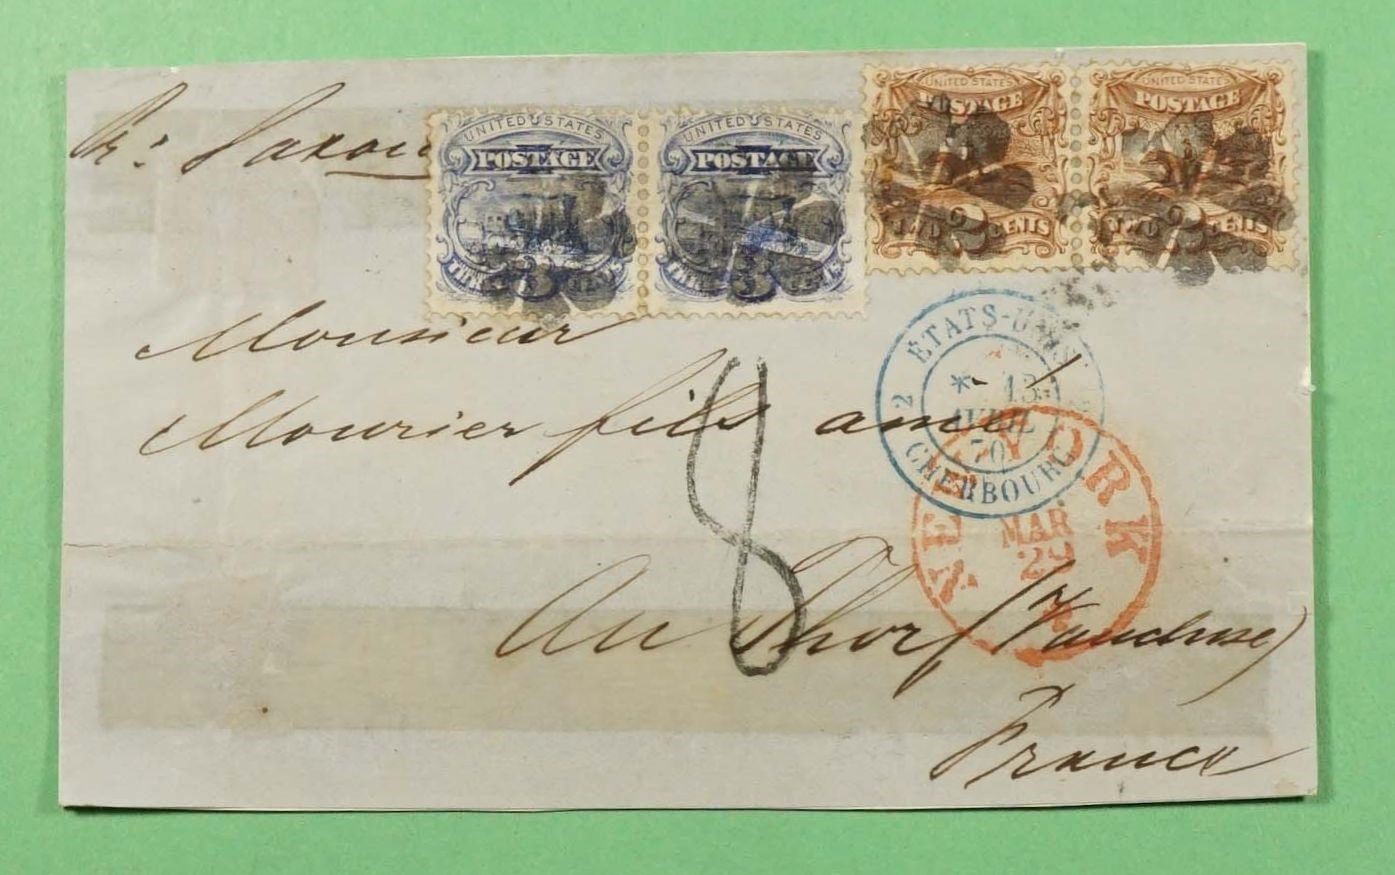 UNITED STATES
POSTAGE
TWO 2 CENTS
UNITED STATES
POSTAGE
TWO 2 CENTS
UNITED STATES
POSTAGE
THREE 3 CENTS
UNITED STATES
POSTAGE
THREE 3 CENTS
Monsieur
Mourier fils ainé
8
2 ETATS-UNIS
* 13
AVRIL
70
CHERBOURG
NEW YORK
MAR
29
Au Thor (Vaucluse)
France